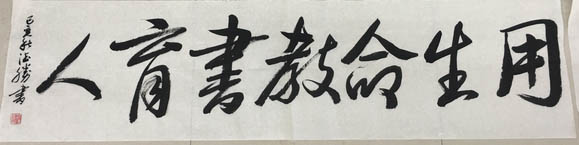 用生命教書育人
己亥秋德勝書